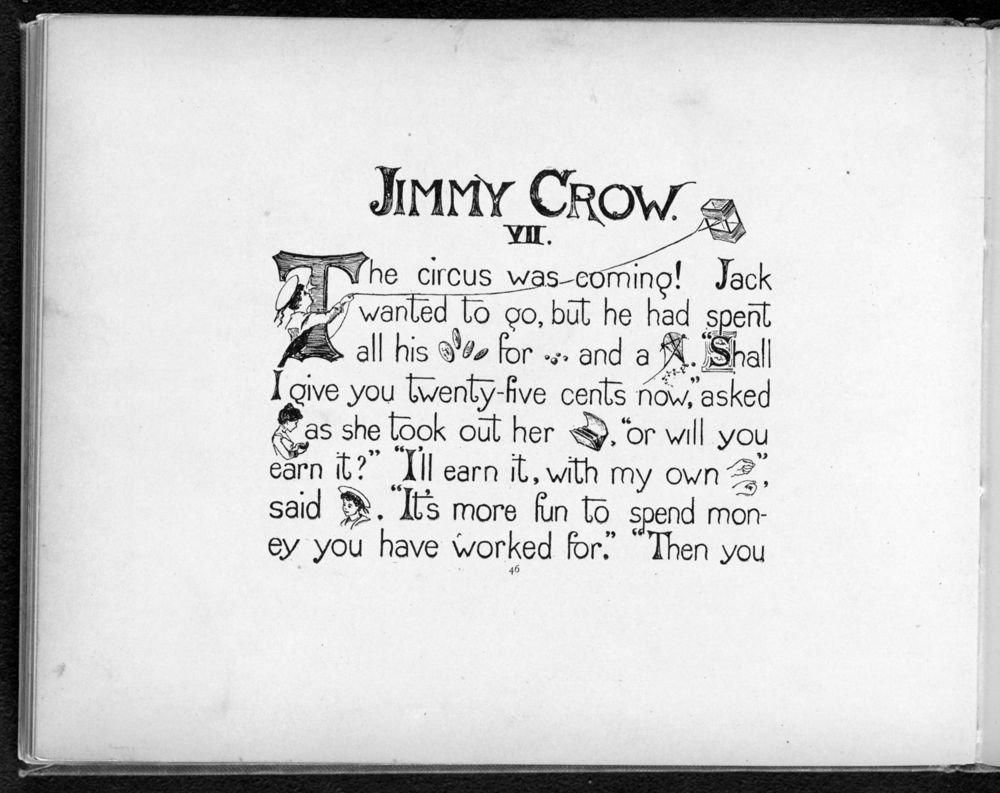 JIMMY CROW.
VII.
The circus was coming! Jack
wanted to go, but he had spent
all his for and a . "Shall
I give you twenty-five cents now," asked
as she took out her , "or will you
earn it?" "I'll earn it, with my own ",
said . "It's more fun to spend mon-
ey you have worked for." "Then you
46